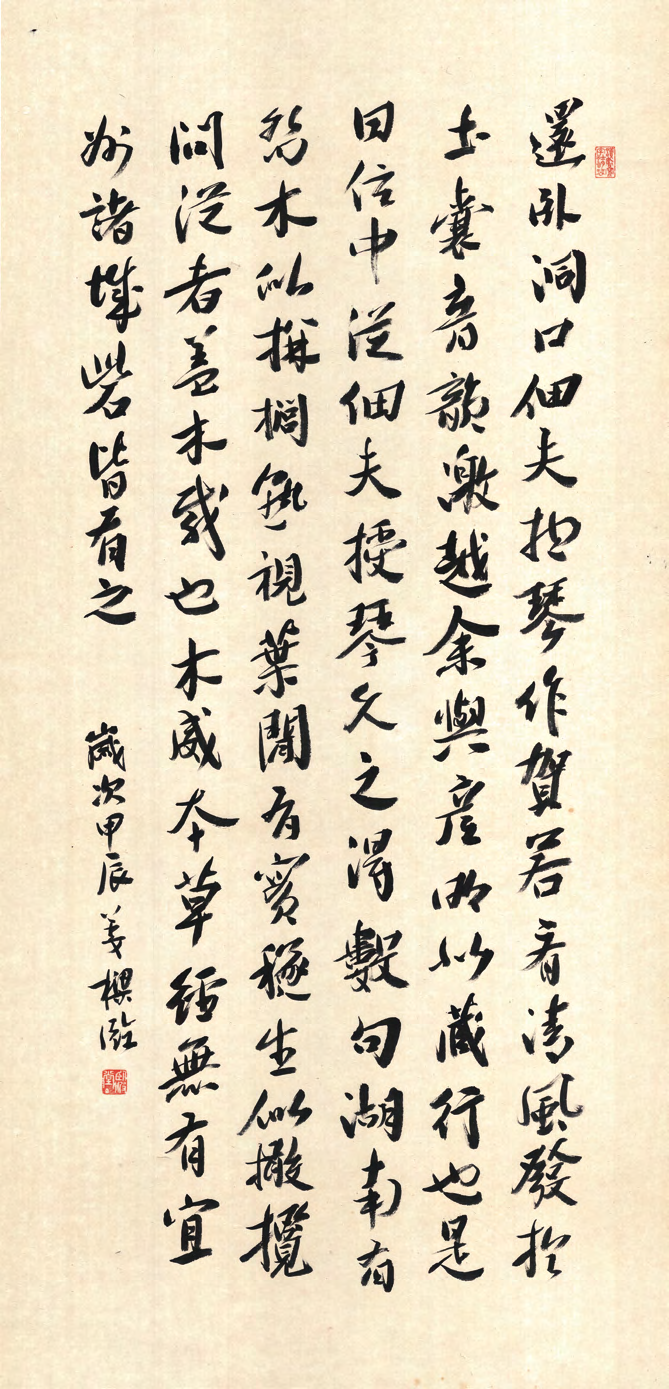 還卧洞口佃夫抱琴作賀若有清風發於
土囊音韻激越余與彦明以藏行也是
日信中從佃夫授琴久之得數句湖南有
喬木似栟櫚熟視葉間有實稷生似橄欖
問從者蓋木威也木威本草經無有宜
州諸城砦皆有之
歲次甲辰姜樑